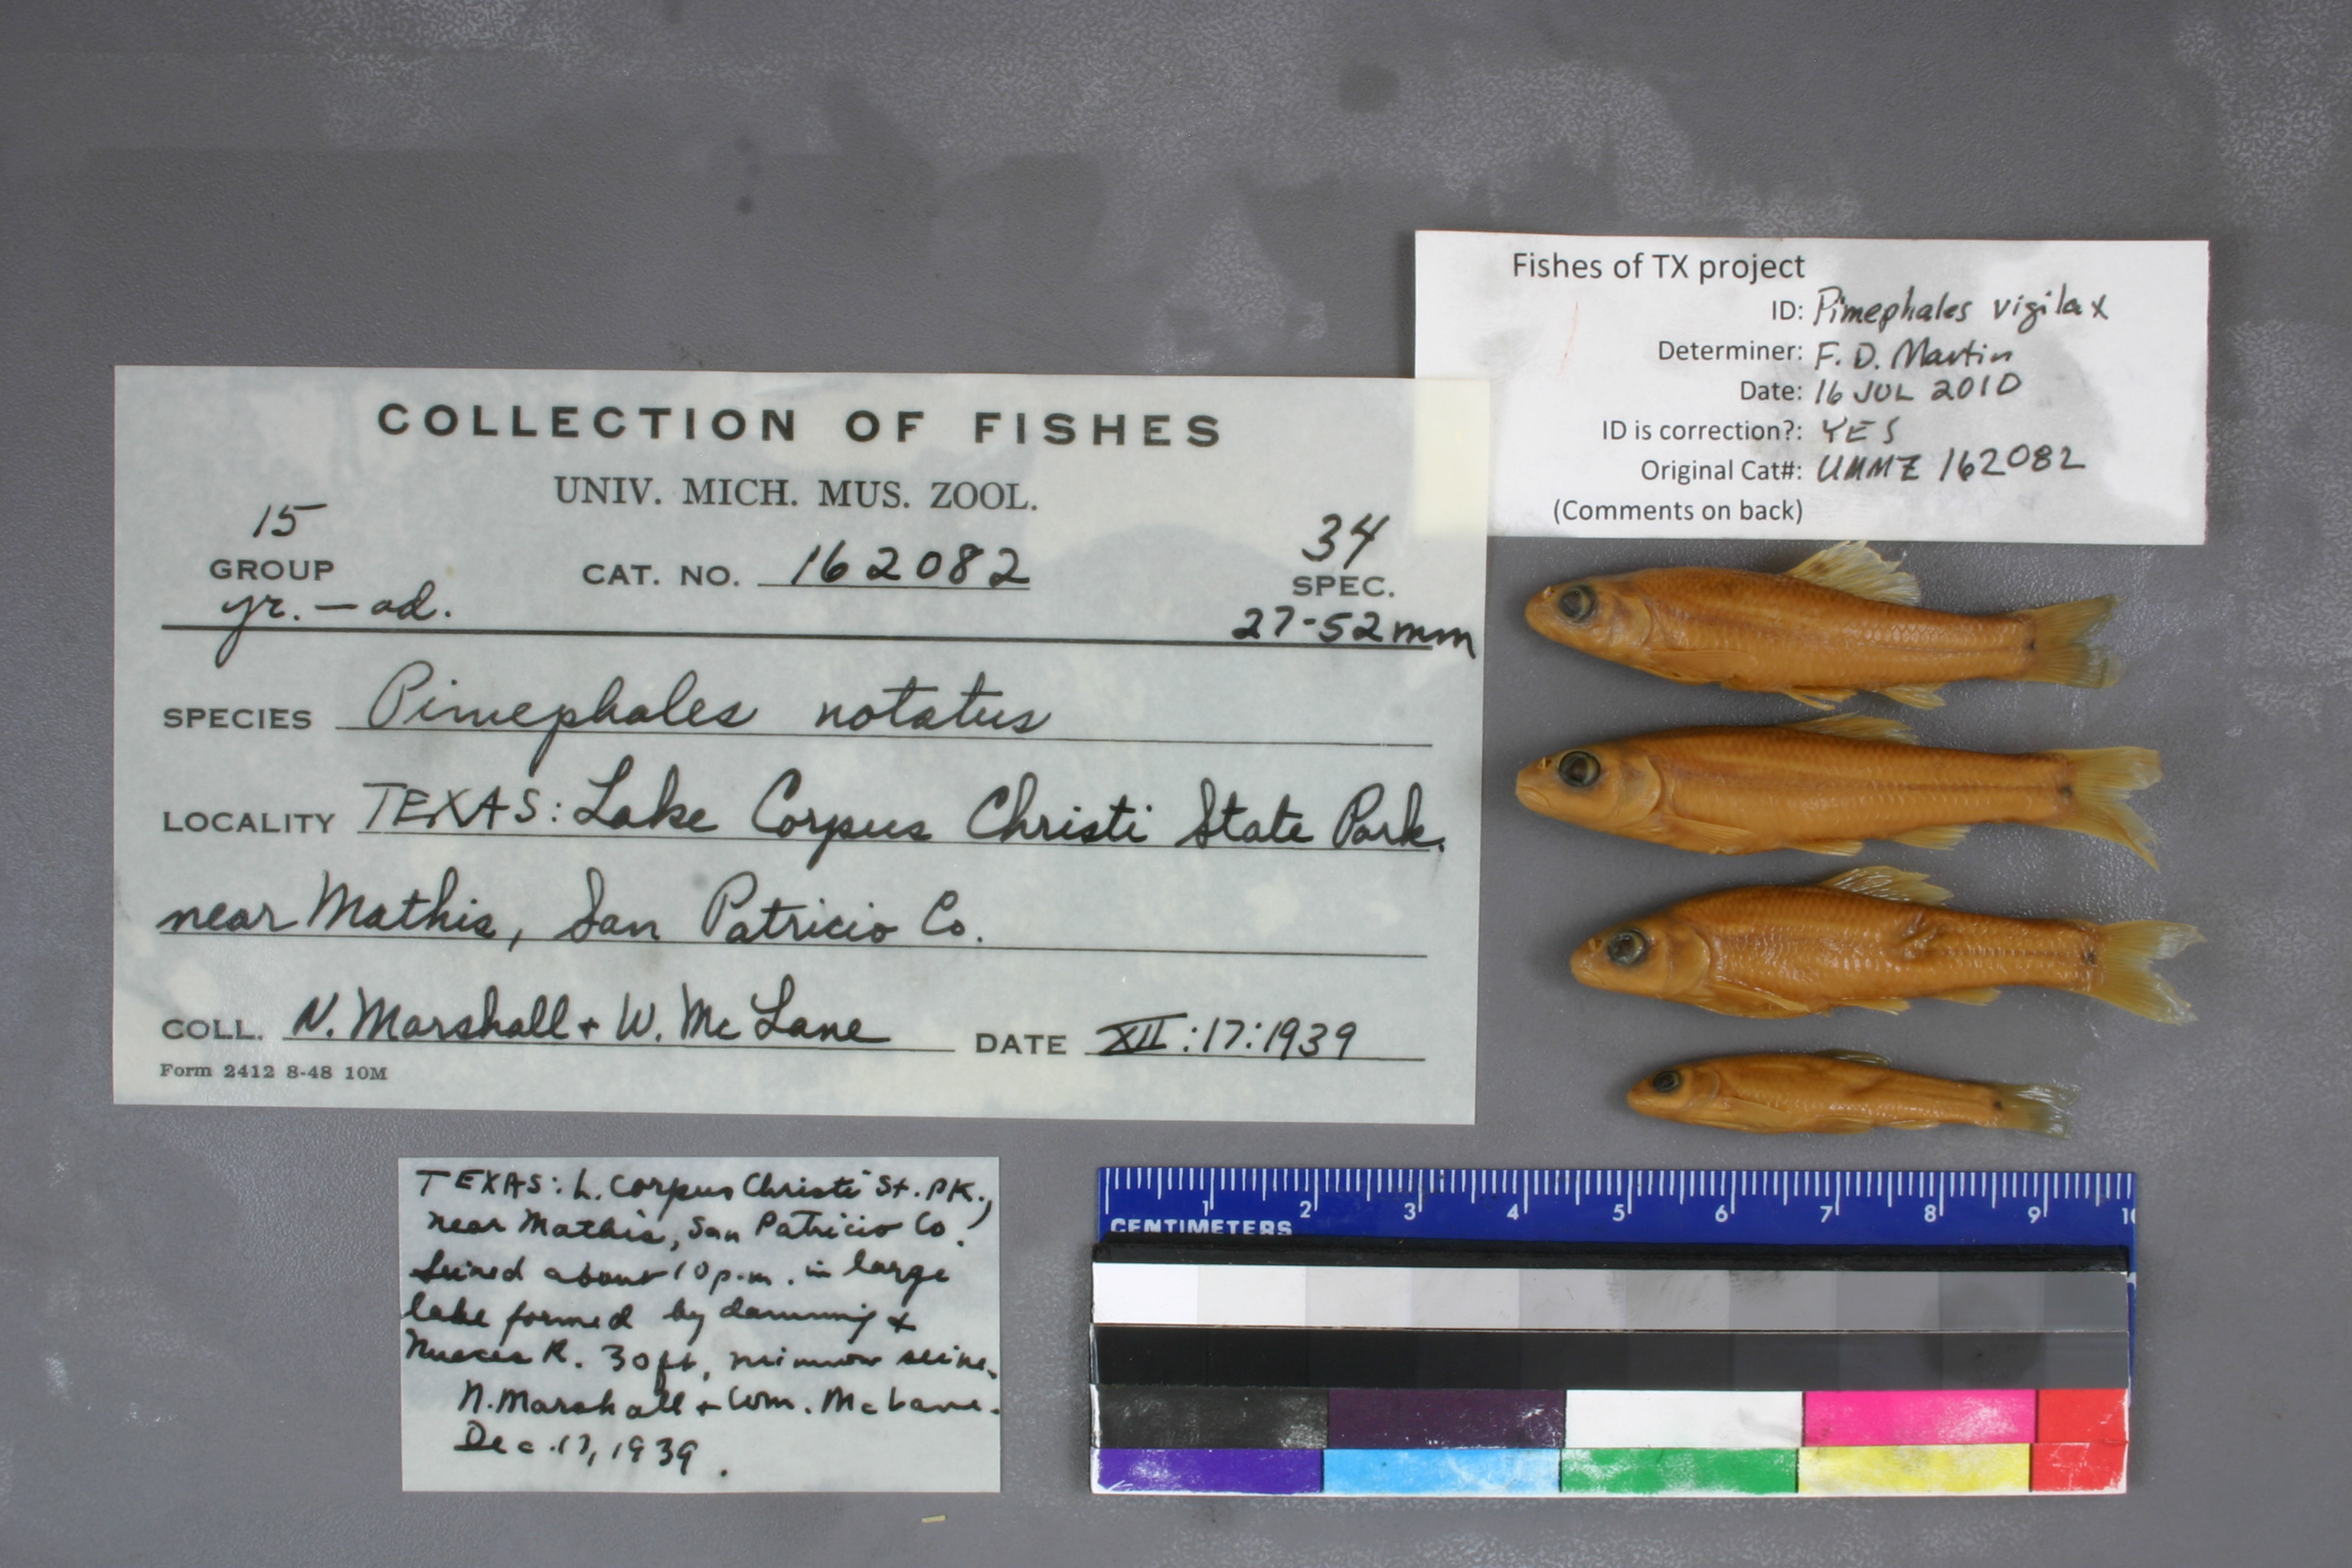 Fishes of TX project
ID: Pimephales vigilax
Determiner: F. D. Martin
Date: 16 JUL 2010
ID is correction?: YES
Original Cat#: UMMZ 162082
(Comments on back)
COLLECTION OF FISHES
UNIV. MICH. MUS. ZOOL.
15
GROUP
yr. - ad.
CAT. NO. 162082
34
SPEC.
27-52mm
SPECIES Pimephales notatus
LOCALITY TEXAS: Lake Corpus Christi State Park.
near Mathis, San Patricio Co.
COLL. N. Marshall + W. McLane DATE XII:17:1939
Form 2412 8-48 10M
TEXAS: L. Corpus Christi St. PK.,
near Mathis, San Patricio Co.
Seined about 10 p.m. in large
lake formed by damming
Nueces R. 30ft, minnow seine.
N. Marshall + Wm. McLane.
Dec. 17, 1939.
1 2 3 4 5 6 7 8 9 10
CENTIMETERS